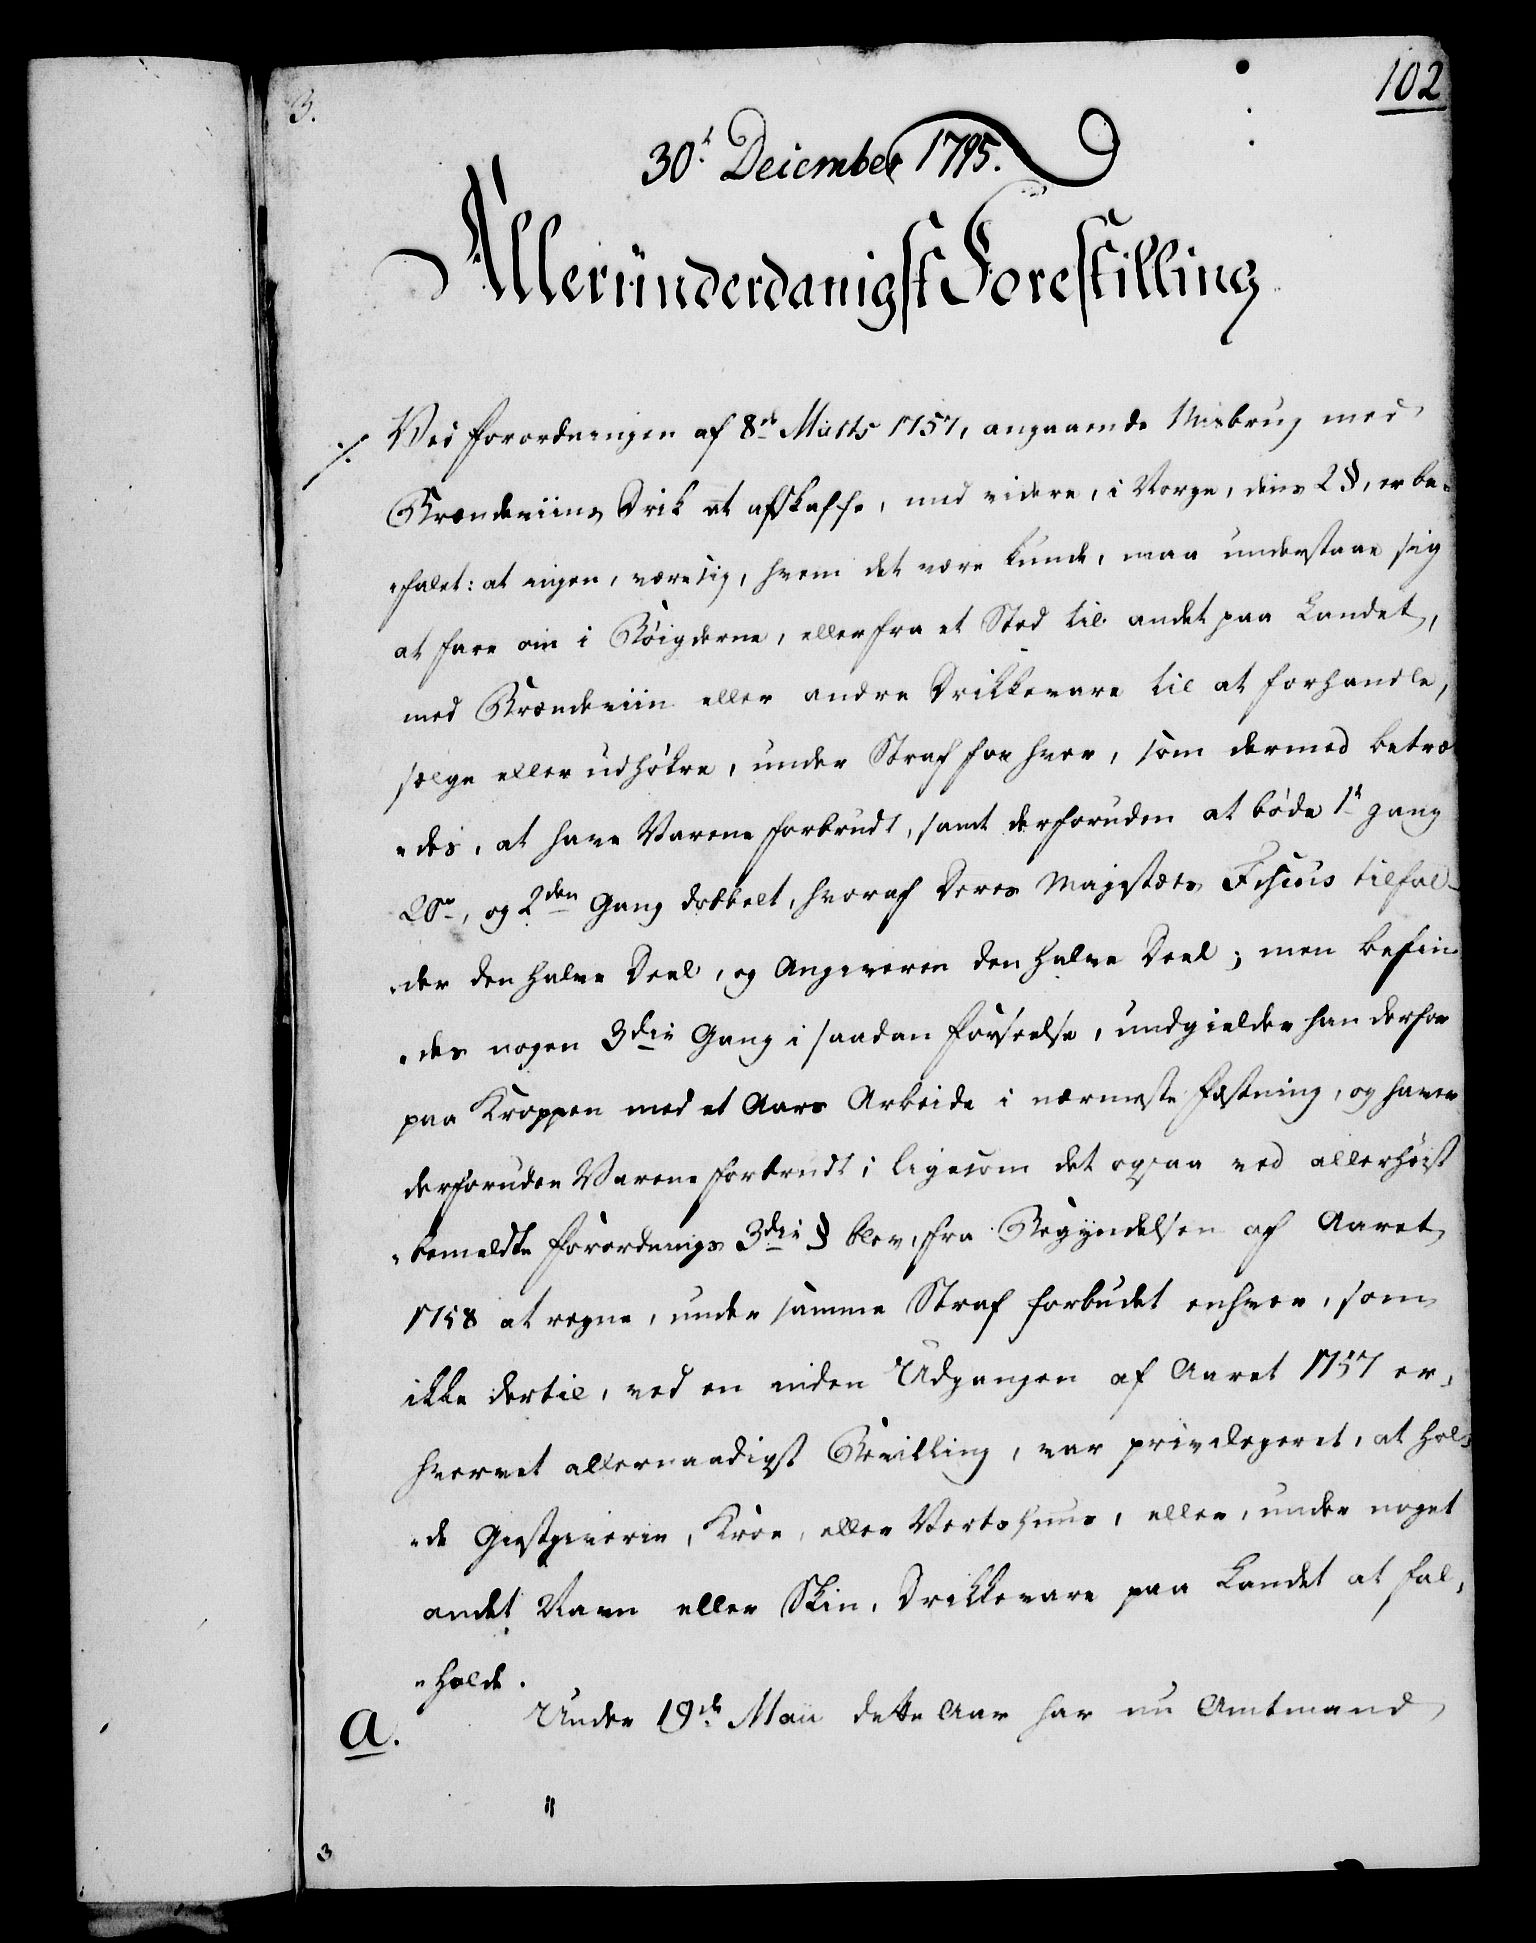 3.
102
30.t Deicember 1795.
Alleründerdanigst Forestilling
Ved Forordningen af 8de Marts 1757, angaaende Misbrug med
Brændeviins Drik at afskaffe, med videre, i Norge, dens 2§, er be„
„falet: at ingen, være sig, hvem det være kunde, maa understaae sig
at fare om i Bøigderne, eller fra et Sted til andet paa Landet,
med Brændeviin eller andre Drikkevare til at forhandle,
sælge eller udhökre, under Straf for hver, som dermed betræ
„des, at have Varene forbrudt, samt derforuden at böde 1te gang
20 rd, og 2den Gang dobbelt, hvoraf Deres Majestæts Fiscus tilfal„
„der den halve Deel, og Angiveren den halve Deel; men befin„
„des nogen 3die Gang i saadan Forseelse, undgielder han derfor
paa Kroppen med et Aars Arbeide i nærmeste Fæstning, og haver
derforuden Varene forbrudt; ligesom det ogsaa ved allerhöist
„bemeldte Forordnings 3die § blev, fra Begyndelsen af Aaret
1758 at regne, under samme Straf forbudet enhver, som
ikke dertil, ved en inden Udgangen af Aaret 1757 er„
hvervet allernaadigst Bevilling, var privilegeret, at hol„
„de Giestgiverie, Kroe, eller Vertshuus, eller, under noget
andet Navn eller Skin, Drikkevare paa Landet at fal„
„holde.
a. Under 19de Maii dette Aar har nu Amtmand
"
3